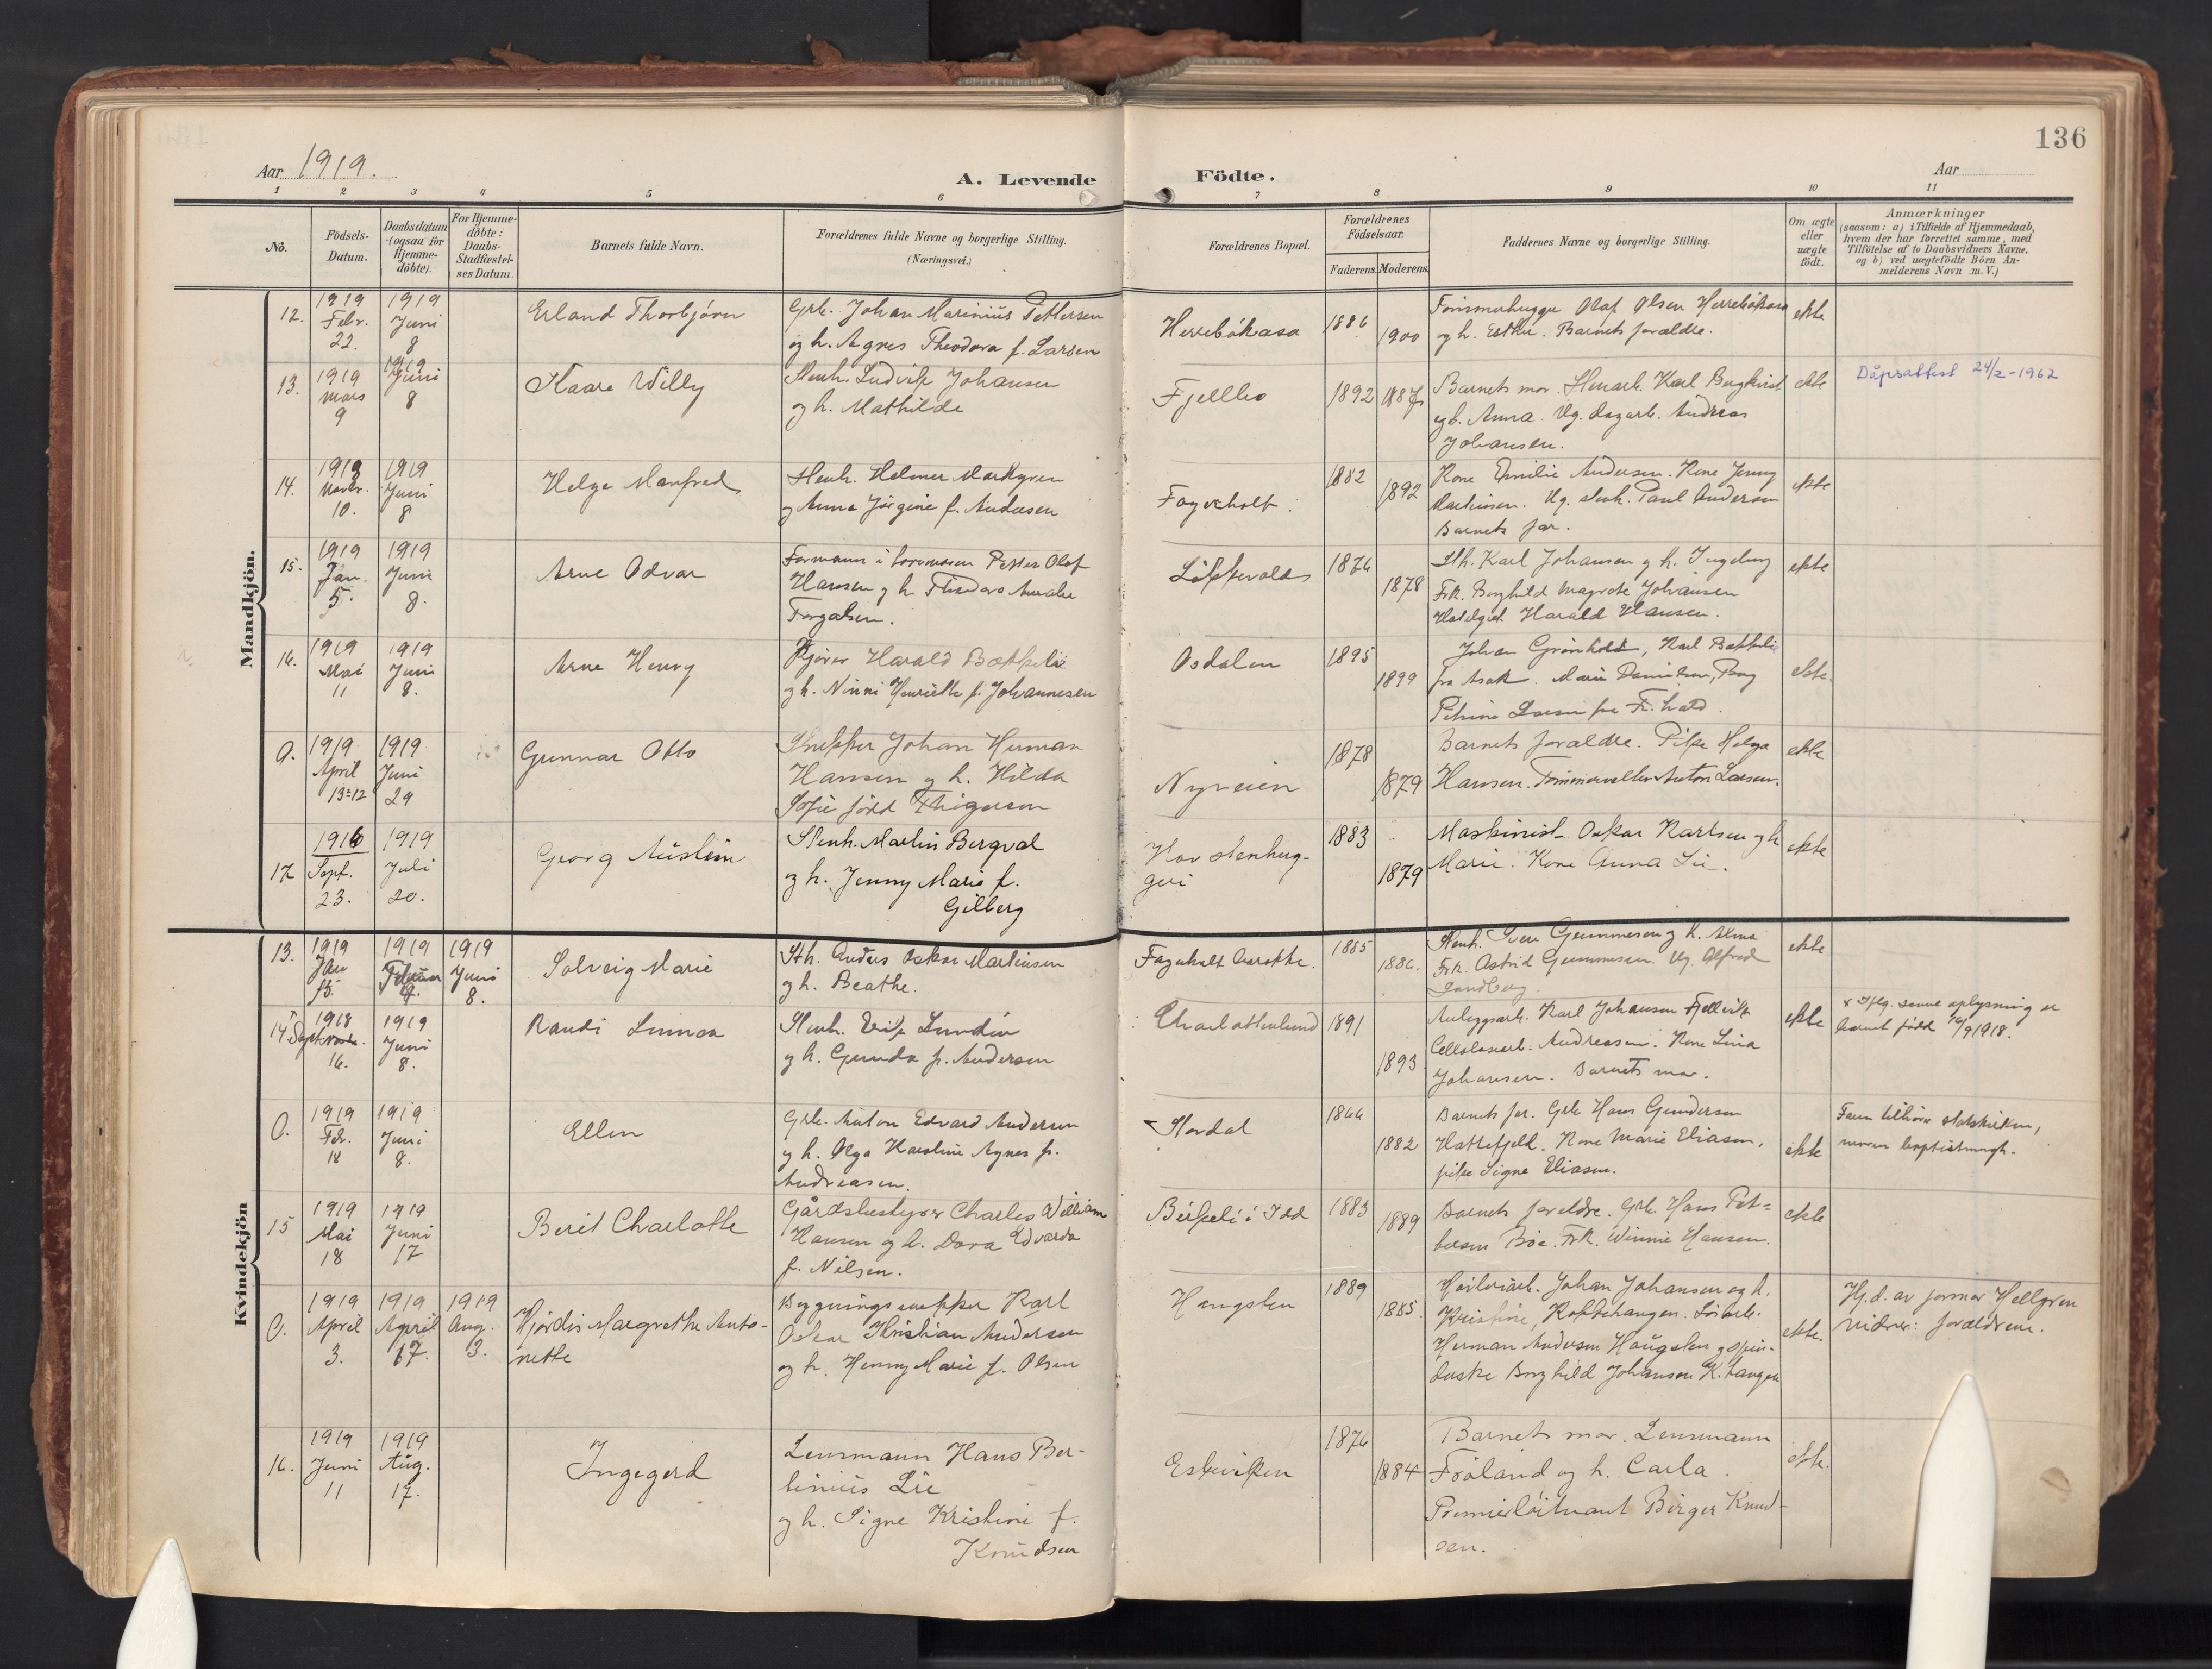 136
Aar 1919.
A. Levende Födte.
Aar
1 2 3 4 5 6 7 8 9 10 11
No.
Födsels-
Datum.
Daabsdatum
(ogsaa for
Hjemme-
döbte).
For Hjemme-
döbte:
Daabs-
Stadfæstel-
ses Datum.
Barnets fulde Navn.
Forældrenes fulde Navne og borgerlige Stilling.
(Næringsvei.)
Forældrenes Bopæl.
Forældrenes
Födselsaar.
Faderens. Moderens.
Faddernes Navne og borgerlige Stilling.
Om ægte
eller
uægte
födt.
Anmærkninger
(saasom: a) i Tilfælde af Hjemmedaab,
hvem der har forrettet samme, med
Tilföielse af to Daabsvidners Navne,
og b) ved uægtefödte Börn An-
melderens Navn m. V.)
Mandkjön.
12.
1919
Febr.
22.
1919
Juni
8
Erland Thorbjörn
Grb. Johan Marinius Pettersen
og h. Agnes Theodora f. Larsen
Herrebökasa
1886
1900
Tömmerhugger Olaf Olsen Herrebökasa
og h. Esther. Barnets forældre.
ekte
13.
1919
Mars
9
1919
Juni
8
Kaare Willy
Stenh. Ludvik Johansen
og h. Mathilde
Fjellbo
1892
1887
Barnets mor. Stenarb. Karl Bergkvist
og h. Anna. Ug. dagarb. Andreas
Johansen.
ekte
Dåpsattest 24/2-1962
14.
1918
Novbr.
10.
1919
Juni
8
Helge Manfred
Stenh. Helmer Markgren
og Anna Jörgine f. Andersen
Fagerholt.
1882
1892
Kone Emilie Andersen. Kone Jenny
Martinsen. Ug. stenh. Paul Andersen
Barnets far.
ekte
15.
1919
Jan.
5.
1919
Juni
8.
Arne Odvar
Formann i Petter Olaf
Hansen og h. Theodora Amalie
Torgalsen.
1876
1878
Sth. Karl Johansen og h. Ingeborg
Frk. Borghild Magrete Johansen
Harald Hansen.
ekte
16.
1919
Mai
11
1919
Juni
8.
Arne Henry
Kjörer Harald Bækkelie
og h. Ninni Henriette f. Johannesen
Osdalen
1895
1899
Johan Grönholt, Karl Bækkelie
fra Asak. Marie Danielsen, Borg
Petrine Larsen fra Fr.hald.
ekte.
O.
1919
April
13-12
1919
Juni
29
Gunnar Otto
Snekker Johan Herman
Hansen og h. Hilda
Sofie född Thögersen
Nyveien
1878
1879
Barnets forældre. Pike Helga
Hansen. Tömmermeller Anton Larsen.
ekte
17
1916
Sept.
23.
1919
Juli
20.
Georg Austein
Stenh. Martin Bergval
og h. Jenny Marie f.
Gilberg
Hov stenhug-
geri
1883
1879
Maskinist Oskar Karlsen og h
Marie. Kone Anna Lie.
ekte
Kvindekjön
13.
1919
Jan
15.
1919
Februar
9.
1919
Juni
8.
Solveig Marie
Sth. Anders Oskar Martinsen
og h. Beathe.
Fagerholt
1885
1886.
Stenh. Sven Gummesen og h. Alma
Frk. Astrid Gummesen. Ug. Alfred
Sandberg
ekte
14
1918
Sept.
16.
1919
Juni
8.
Randi Linnea
Stenh. Erik Lundin
og h. Gunda f. Andersen
Charlottenlund
1891
1893
Anleggsarb. Karl Johansen Fjellvik
Cellulosearb. Andreasen. Kone Lina
Johansen. Barnets mor.
ekte
x Iflg. senere oplysning er
barnet född 16/9 1918.
O.
1919
Febr.
18
1919
Juni
8.
Ellen
Grb. Anton Edvard Andersen
og h. Olga Karoline Agnes f.
Andreasen.
Stordal
1866
1882
Barnets far. Grb Hans Gundersen
Hattefjeld. Kone Marie Eliasen,
pike Signe Eliasen.
ekte
Faren tilhörer statskirken,
moren baptistmngh.
15
1919
Mai
18
1919
Juni
17
Berit Charlotte
Gårdsbestyrer Charles William
Hansen og h. Dora Edvarda
f. Nilsen.
Birkeli i Idd
1883
1889
Barnets foreldre. Grb. Hans Pet-
tersen Böe. Frk. Winnie Hansen.
ekte
O.
1919
April
3.
1919
April
17.
1919
Aug.
3.
Hjördis Margrethe Anto-
nette
Bygningssnekker Karl
Oskar Kristian Andersen
og h. Henny Marie f. Olsen
Haugsten
1889
1885.
Höileriarb. Johan Johansen og h.
Kristine, Kopsehaugen.
Herman Andersen Haugsten og spin-
derske Borghild Johansen K. haugen
ekte.
Hj.d. av jormor Hellgren
vidner: forældrene.
16.
1919
Juni
11
1919
Aug.
17.
Ingegerd
Lensmann Hans Ber-
tinius Lie
og h. Signe Kristine f.
Knudsen
Eskeviken
1876
1884
Barnets mor. Lensmann
Fröland og h. Carla.
Premierlöitnant Birger Knud-
sen.
ekte.